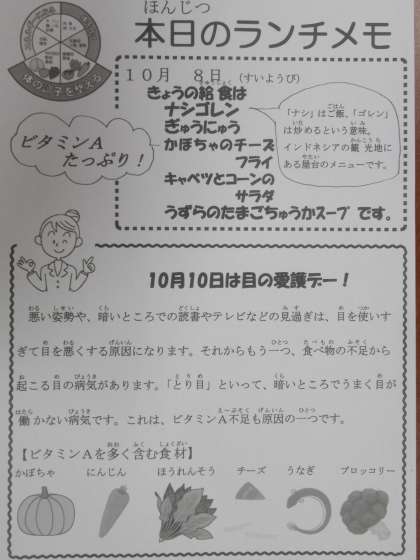 ほんじつ
本日のランチメモ
体の調子を整える
10月 8日 (すいようび)
きょうの給食は
ナシゴレン
ぎゅうにゅう
かぼちゃのチーズ
フライ
キャベツとコーンの
サラダ
うずらのたまごちゅうかスープ です。
「ナシ」はご飯、「ゴレン」
は炒めるという意味。
インドネシアの観光地に
ある屋台のメニューです。
ビタミンA
たっぷり！
10月10日は目の愛護デー！
悪い姿勢や、暗いところでの読書やテレビなどの見過ぎは、目を使いす
ぎて目を悪くする原因になります。それからもう一つ、食べ物の不足から
起こる目の病気があります。「とり目」といって、暗いところでうまく目が
働かない病気です。これは、ビタミンA不足も原因の一つです。
【ビタミンAを多く含む食材】
かぼちゃ にんじん ほうれんそう チーズ うなぎ ブロッコリー